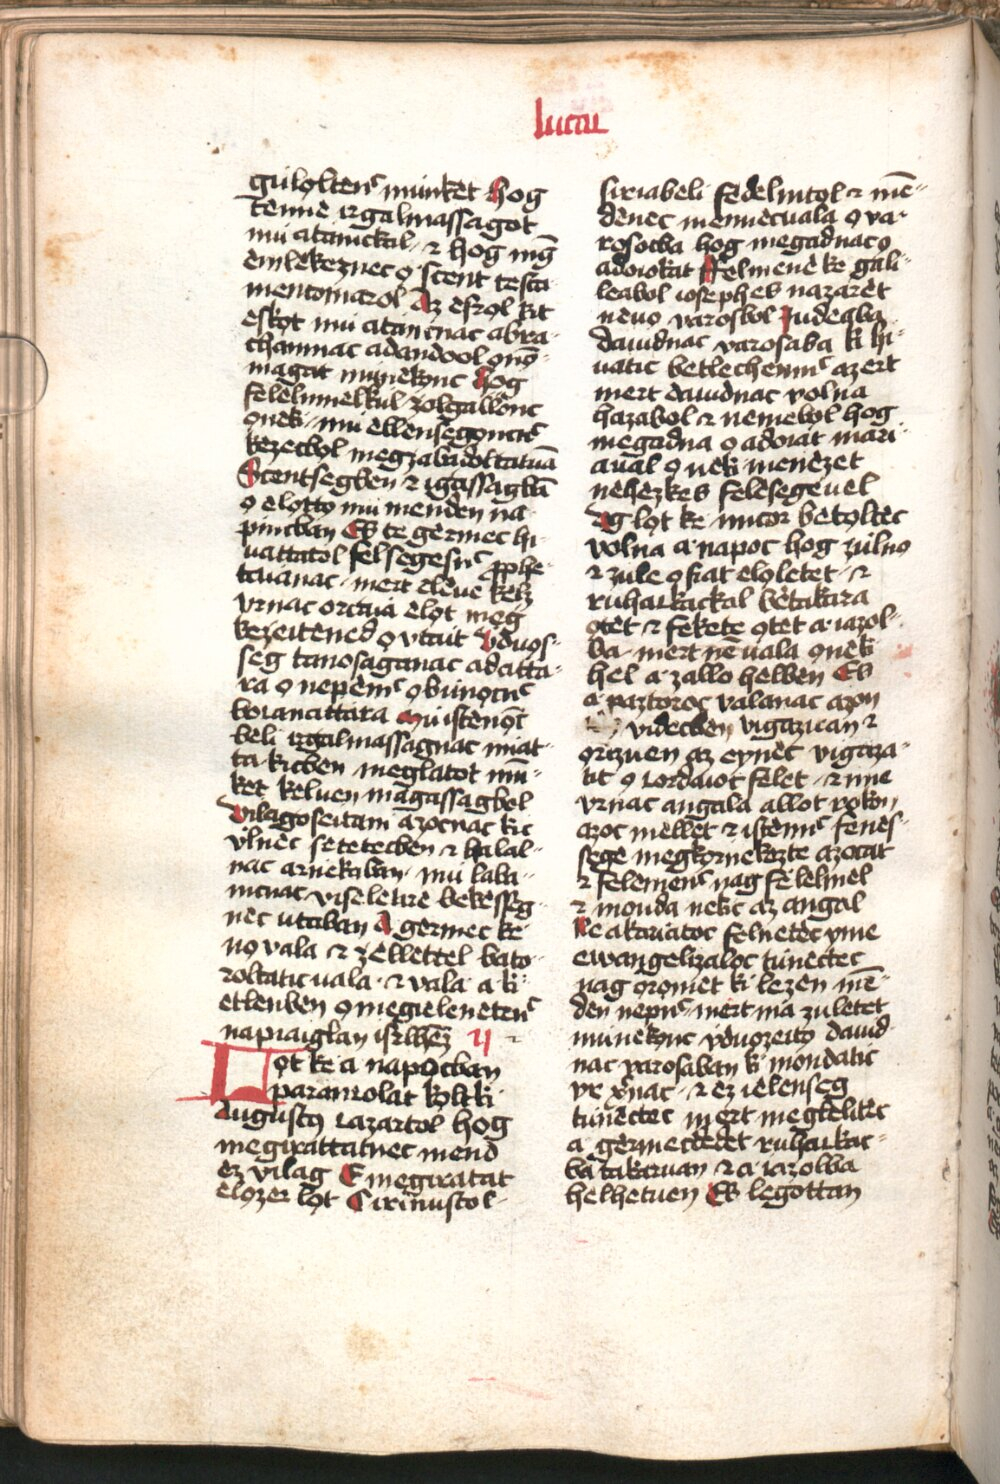 lucau
gúlọltenc múnket Hog
tenne irgalmassagot
mú atanckal · ⁊ hog mg̃
emlekeznec ọ scent testa
mentomarol Az èskọl kit
eskọt mú atancnac abra-
chamnac adandool ọnọ̄-
magat múnekọnc Hog
felèlmnelkúl zolgallonc
ọnèki mú ellensegọncnc
kezecbọl megzabadoltatuā
Scentsegben ⁊ igassagbā
ọ èlọtto mú menden na-
pincban Es te gèrmec hi-
uattatol felsegesnc ꝓphe-
tauanac · mert èleue kèlz
vrnac orcaia èlọt meg
kezeitened ọ vtait Vduos-
seg tanosaganac adatta-
ra ọ nepènc ọ búnọcnc
bocanattara Mú istenọ̄c-
beli irgalmassagnac miat-
ta · kicben meglatot mú̄-
ket kèluen magassagbol
Vilagoseitani azocnac kic
vlnèc sètetecben ⁊ halal-
nac arnekaban · mú laba-
incnac viselètire bekèsseg-
nec vtaban A gèrmec ke-
nọ vala ⁊ zèllèttel bato-
roltatic uala · ⁊ vala a ki-
etlenben ọ megielenetenc
napiaiglan isrl̃hèz ij
Lọt ke a napocban
parancolat kọlt ki
Augustọ iazartol hog
megirattatnec mend
ez vilag E megiratat
elọzer lọt Cirinustol-
siriabeli fedelmtọl ⁊ mē-
dènec mennecuala ọ va-
rosocba hog megadnac ọ
adoiokat Felmene ke gali-
leabol iosephes nazarèt
neuọ varosbol Iudeaba
dauidnac varosaba ki hi-
uatic betlechemnc azert
mert dauidnac volna
hazabol ⁊ nemebọl hog
megadna ọ adoiat mari-
aual ọ nèki menèzet
nehèzkes felesegeuèl
Ug lọt ke micor bètọltec
volna a napoc hog zúlnọ
⁊ zúle ọ fiat èlọletet · ⁊
ruhaickackal bètakara
ọtèt ⁊ fèkète ọtèt a iazol-
ba · mert nē uala ọnèki
hel a zallo helben Es
a paztoroc valanac azon
videcben vigazuan ⁊
orizuen az eynèc vigaza-
tit ọ iordaioc felet · ⁊ ime
vrnac angala allot vọkọn
azoc mellèt ⁊ istennc fenes-
sege megkọrnekèzte azocat
⁊ felemenc nag felelmèl
⁊ monda nekic az angal
Ne akariatoc felnètèc yme
ewangelizaloc túnèctèc
nag ọrọmèt ki lezèn mē-
den nepnc · mert ma zúlètèt
múnekọnc vduozeito dauid-
nac varosaban ki mondatic
vr x̃nac · ⁊ ez ièlenseg
túnèctèc mert meglèlitec
a gèrmecdèdet ruhaickac-
ba takaruan ⁊ a iazolba
helhetuen Es legottan